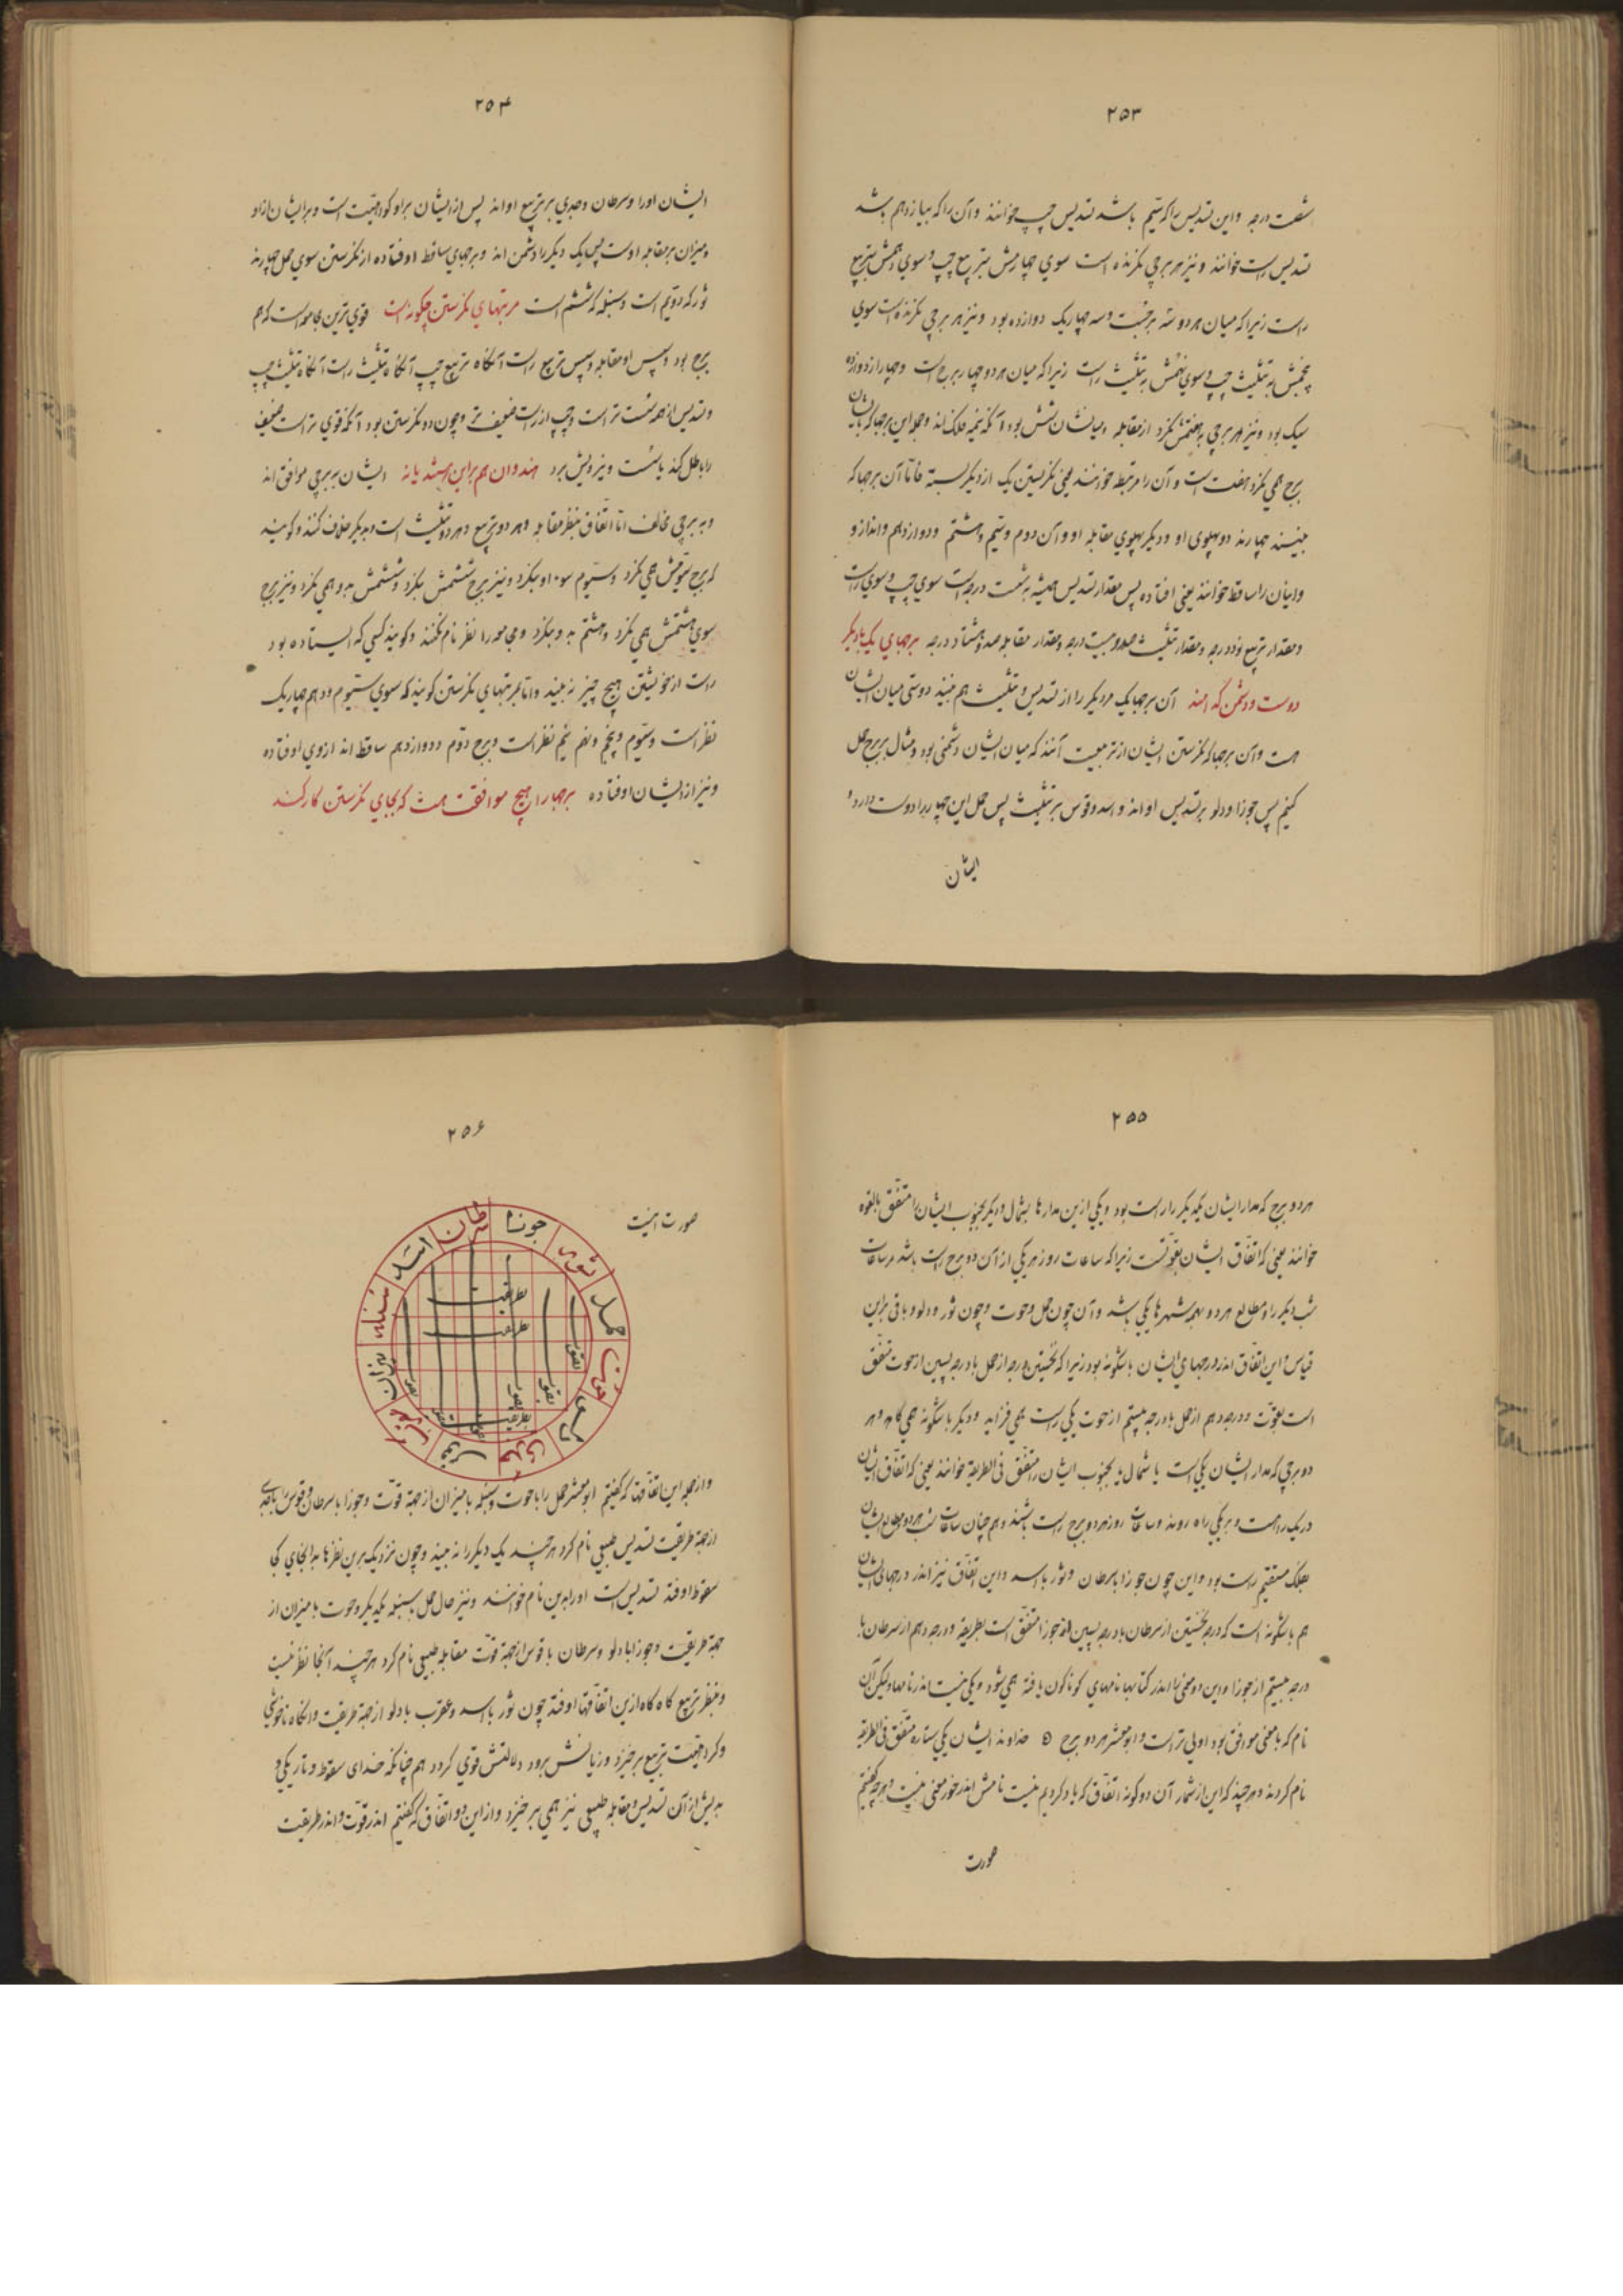 ۲۵۳
شصت درجه و این تسدیس را که سیّم باشد تسدیس چپ خوانند و آن را که بیازدهم باشد
تسدیس راست خوانند و نیز هر برجی نگرنده است سوی چهارمش بتربیع چپ و سوی دهمش بتربیع
راست زیرا که میان هر دو سه برجست و سه چهاریک دوازده بود و نیز هر برجی نگرنده است سوی
پنجمش به تثلیث چپ و سوی نهمش به تثلیث راست زیرا که میان هر دو چهار برج است و چهار از دوازده
سیک بود و نیز هر برجی به هفتمش نگرد از مقابله و میانشان شش بود و آنکه نیمه فلک اند و جمله این برجها که بایشان
برج همی نگرد هفت است و آن را مرتبطه خوانند یعنی نگریستن یک از دیگر بسته فامّا آن برجها که
نبینند چهارند دو پهلوی او و دیگر پهلوی مقابله او و آن دوم و ششم و هشتم و دوازدهم و انداز و
و ایشان را ساقط خوانند یعنی افتاده پس مقدار تسدیس همیشه شصت درجه است سوی چپ و سوی راست
و مقدار تربیع نود درجه و مقدار تثلیث صد و بیست درجه و مقدار مقابله صد و هشتاد درجه برجهای یک با دیگر
دوست و دشمن که امند آن برجها یک مر دیگر را از تسدیس و تثلیث هم بینند دوستی میان ایشان
هست و آن برجها که نگرستن ایشان از تربیعست آنند که میان ایشان دشمنی بود و مثال بر برج حمل
کنیم پس جوزا و دلو بر تسدیس او اند و اسد و قوس بر تثلیث پس حمل این چهار را دوست دارد و
ایشان
۲۵۴
ایشان او را و سرطان و جدی بر تربیع او اند پس از ایشان بر او کراهیت است و بر ایشان از او
و میزان بر مقابله اوست پس یک دیگر را دشمن اند و برجهای ساقط اوفتاده از نگرستن سوی حمل چهارند
ثور که دویم است و سنبله که ششم است مرتبتهای نگرستن چگونه است قوی ترین مجامعه است که هم
برج بود و سپس او مقابله و سپس تربیع راست آنگاه تربیع چپ آنگاه تثلیث راست آنگاه تثلیث چپ
و تسدیس از همه سست تر است و چپ از راست ضعیف تر و چون دو نگرستن بود آنکه قوی تر است ضعیف
را باطل کند یا سست و نیرویش برد هندوان هم بر این هستند یا نه ایشان به برجی موافق اند
و به برجی مخالف امّا اتفاق بنظر مقابله و هر دو تربیع و هر دو تثلیث است و به دیگر خلاف کنند و گویند
که برج سوّمش همی نگرد و سیّوم سوی او ننگرد و نیز برج ششمش ننگرد و ششمش به و همی نگرد و نیز برج
سوی هشتمش همی نگرد و هشتم به و ننگرد و مجامعه را نظر نام نکنند و گویند کسی که ایستاده بود
راست از خویشتن هیچ چیز نه بیند و امّا مرتبتهای نگرستن گویند که سوی سیّوم و دهم چهاریک
نظر است و سیّوم و پنجم و نهم نیم نظر است و برج دوّم و دوازدهم ساقط اند از وی اوفتاده
و نیز از ایشان اوفتاده برجها را هیچ موافقت هست که بجای نگرستن کار کند
۲۵۵
هر دو برج که مدار ایشان یکدیگر را راست بود و یکی ازین مدارها بشمال و دیگر بجنوب ایشان را متفّق بالقوه
خوانند یعنی که اتفاق ایشان بقوتست زیرا که ساعات روز هر یکی از آن دو برج راست باشد مر ساعات
شب دیگر را و مطالع هر دو بهمه شهرها یکی باشد و آن چون حمل و حوت و چون ثور و دلو و باقی براین
قیاس و این اتفاق اندر درجهای ایشان باشگونه بود زیرا که نخستین درجه از حمل با درجه پسین از حوت متفّق
است بقوّت و درجه دهم از حمل با درجه بیستم از حوت یکی راست همی فزاید و دیگر باشگونه همی کاهد و هر
دو برجی که مدار ایشان یکی است یا شمال یا بجنوب ایشان را متفّق فی الطریقه خوانند یعنی که اتفاق ایشان
در یک راهست و بر یکی راه روند و ساعات روز هر دو برج راست باشند و هم چنان ساعات شب هر دو مطالع ایشان
بفلک مستقیم راست بود و این چون جوزا با سرطان و ثور با اسد و این اتفاق نیز اندر درجهای ایشان
هم باشگونه است که درجه نخستین از سرطان با درجه پسین از جوزا متفّق است بطریقه و درجه دهم از سرطان با
درجه بیستم از جوزا و این دو معنی را اندر کتابها نامهای گوناگون یافته همی شود و یکی نیست اندر نامها و لیکن آن
نام که با معنی موافق بود اولی تر است و ابومعشر هر دو برج ۵ خداوند ایشان یکی ستاره متفّق فی الطریقه
نام کردند و هر چند که این از شمار آن دو گونه اتفاق که یاد کردیم نیست نامش اندر خور معنی نیست و هر چه گفتیم
صورت
۲۵۶
صورت اینست
سرطان
جوزا
ثور
حمل
حوت
دلو
جدی
قوس
عقرب
میزان
سنبله
اسد
بطریقت
بطریقت
بقوت
بقوت
بطریقت
و از جمله این اتفاقها که گفتیم ابومعشر حمل را با حوت و سنبله با میزان از جهة قوّت و جوزا با سرطان و قوس با جدی
از جهة طریقت تسدیس طبیعی نام کرد هر چند یک دیگر را نه بینند و چون نزدیک برین نظرها بدانجای کجا
سقوط اوفتد تسدیس است او را بدین نام خوانند و نیز حال حمل به سنبله یکدیگر و حوت با میزان از
جهة طریقت و جوزا با دلو و سرطان با قوس از جهة قوّت مقابله طبیعی نام کرد هر چند آنجا نظر نیست
و بنظر تربیع گاه گاه ازین اتفاقها اوفتد چون ثور با اسد و عقرب با دلو از جهة طریقت و آنگاه ناخوشی
و کراهیت تربیع بر خیزد و زیانش برود و دلالتش قوی گردد هم چنانکه ضدای سقوط و تاریکی و
به پیش از آن تسدیس و مقابله طبیعی نیز همی بر خیزد و از این دو اتفاق که گفتیم اندر قوّت و اندر طریقت